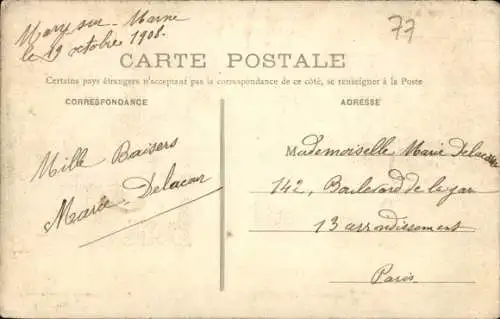 Mary sur Marne
le 19 octobre 1908.
77
CARTE POSTALE
Certains pays étrangers n'acceptant pas la correspondance de ce côté, se renseigner à la Poste
CORRESPONDANCE
ADRESSE
Mille Baisers
Marie Delacour
Mademoiselle Marie Delacour
142, Boulevard de la gare
13 arrondissement
Paris